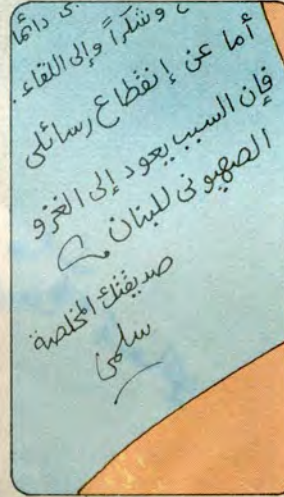 دائمًا
و شكراً وإلى اللقاء.
أما عن إنقطاع رسائلى
فإن السبب يعود إلى الغزو
الصهيونى للبنان
صديقتك المخلصة
سلمى